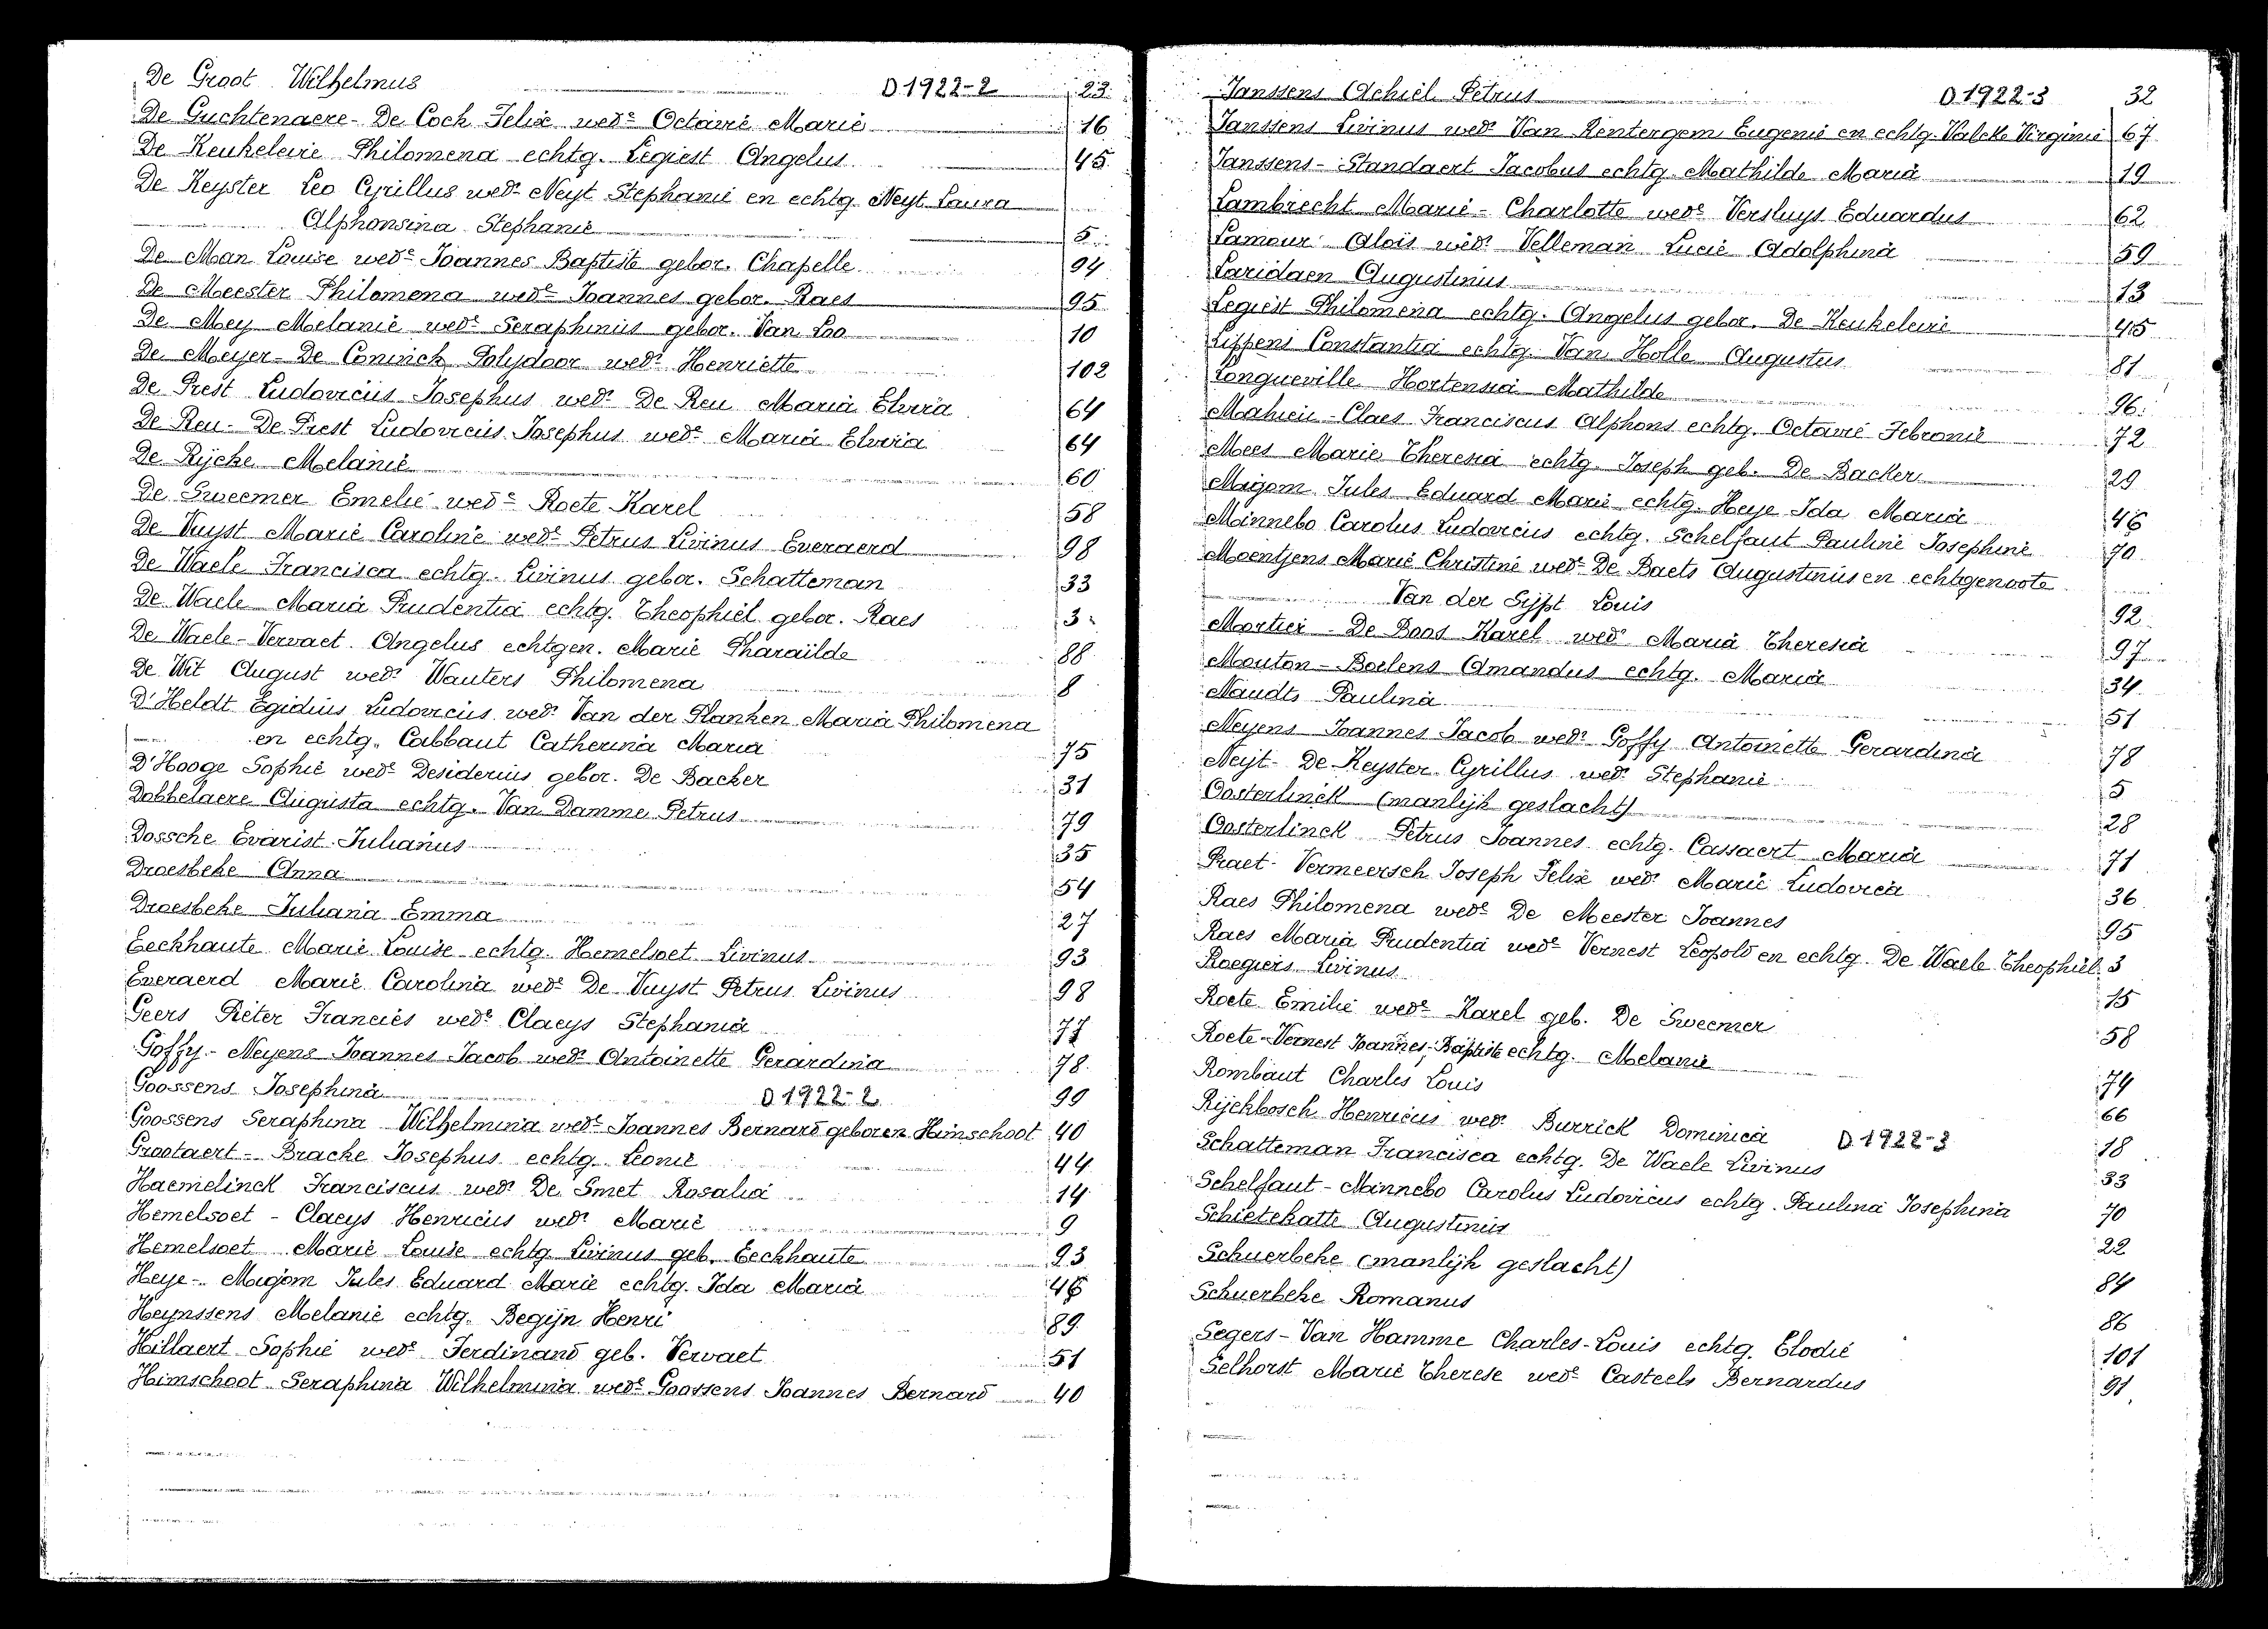 De Groot Wilhelmus D 1922-2 23
De Guchtenaere - De Cock Felix wedᵉ Octavie Marie 16
De Keukeleire Philomena echtg. Legiest Angelus 45
De Keyster Leo Cyrillus wedʳ Neyt Stephanie en echtg. Neyt Laura
Alphonsina Stephanie 5
De Man Louise wedᵉ Joannes Baptiste gebor. Chapelle 94
De Meester Philomena wedᵉ Joannes gebor. Raes 95
De Mey Melanie wedᵉ Seraphinus gebor. Van Loo 10
De Meyer - De Coninck Polydoor wedʳ Henriette 102
De Prest Ludovicus Josephus wedʳ De Reu Maria Elvira 64
De Reu - De Prest Ludovicus Josephus wedᵉ Maria Elvira 64
De Rijcke Melanie 60
De Sweemer Emelie wedᵉ Roete Karel 58
De Vuyst Marie Caroline wedᵉ Petrus Livinus Everaerd 98
De Waele Francisca echtg. Livinus gebor. Schatteman 33
De Waele Maria Prudentia echtg. Theophiel gebor. Raes 3
De Waele - Vervaet Angelus echtgen. Marie Pharaïlde 88
De Wit August wedʳ Wauters Philomena 8
D'Heldt Egidius Ludovicus wedʳ Van der Planken Maria Philomena
en echtg. Cabbaut Catherina Maria 75
D'Hooge Sophie wedᵉ Desiderius gebor. De Backer 31
Dobbelaere Augusta echtg. Van Damme Petrus 79
Dossche Evarist Julianus 35
Droesbeke Anna 54
Droesbeke Juliana Emma 27
Eeckhaute Marie Louise echtg. Hemelsoet Livinus 93
Everaerd Marie Carolina wedᵉ De Vuyst Petrus Livinus 98
Geers Pieter Francies wedʳ Claeys Stephania 77
Goffy - Neyens Joannes Jacob wedʳ Antoinette Gerardina 78
Goossens Josephina D 1922-2 99
Goossens Seraphina Wilhelmina wedᵉ Joannes Bernard geboren Himschoot 40
Grootaert - Bracke Josephus echtg. Leonie 44
Haemelinck Franciscus wedʳ De Smet Rosalia 14
Hemelsoet - Claeys Henricus wedʳ Marie 9
Hemelsoet Marie Louise echtg. Livinus geb. Eeckhaute 93
Heye - Migom Jules Eduard Marie echtg. Ida Maria 46
Heynssens Melanie echtg. Begijn Henri 89
Hillaert Sophie wedᵉ Ferdinand geb. Vervaet 51
Himschoot Seraphina Wilhelmina wedᵉ Goossens Joannes Bernard 40
Janssens Achiel Petrus D 1922-3 32
Janssens Livinus wedʳ Van Rentergem Eugenie en echtg. Valcke Virginie 67
Janssens - Standaert Jacobus echtg. Mathilde Maria 19
Lambrecht Marie - Charlotte wedᵉ Versluys Eduardus 62
Lamour Aloïs wedʳ Velleman Lucie Adolphina 59
Laridaen Augustinus 13
Legiest Philomena echtg. Angelus gebor. De Keukeleire 45
Lippens Constantia echtg. Van Holle Augustus 81
Longueville Hortensia Mathilde 96
Mahieu - Claes Franciscus Alphons echtg. Octavie Febronie 72
Mees Marie Theresia echtg. Joseph geb. De Backer 29
Migom Jules Eduard Marie echtg. Heye Ida Maria 46
Minnebo Carolus Ludovicus echtg. Schelfaut Pauline Josephine 70
Moentjens Marie Christine wedᵉ De Baets Augustinus en echtgenoote
Van der Sijpt Louis 92
Mortier - De Boos Karel wedʳ Maria Theresia 97
Mouton - Boelens Amandus echtg. Maria 34
Naudts Paulina 51
Neyens Joannes Jacob wedʳ Goffy Antoinette Gerardina 78
Neijt - De Keyster Cyrillus wedʳ Stephanie 5
Oosterlinck (manlijk geslacht) 28
Oosterlinck Petrus Joannes echtg. Cassaert Maria 71
Praet - Vermeersch Joseph Felix wedʳ Marie Ludovica 36
Raes Philomena wedᵉ De Meester Joannes 95
Raes Maria Prudentia wedᵉ Vernest Leopold en echtg. De Waele Theophiel 3
Roegiers Livinus 15
Roete Emilie wedᵉ Karel geb. De Sweemer 58
Roete - Vernest Joannes - Baptiste echtg. Melanie
Rombaut Charles Louis 74
Rijckbosch Henricus wedʳ Burrick Dominica D 1922-3 66
Schatteman Francisca echtg. De Waele Livinus 18
Schelfaut - Minnebo Carolus Ludovicus echtg. Paulina Josephina 33
Schietekatte Augustinus 70
Schuerbeke (manlijk geslacht) 22
Schuerbeke Romanus 84
Segers - Van Hamme Charles - Louis echtg. Elodie 86
Selhorst Marie Therese wedᵉ Casteels Bernardus 101
91